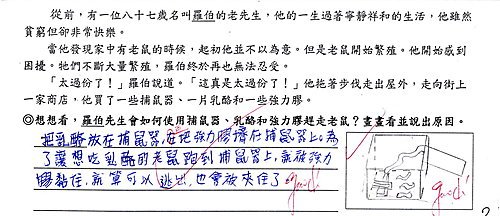 從前，有一位八十七歲名叫羅伯的老先生，他的一生過著寧靜祥和的生活，他雖然
貧窮但卻非常快樂。
當他發現家中有老鼠的時候，起初他並不以為意。但是老鼠開始繁殖。他開始感到
困擾。牠們不斷大量繁殖，羅伯終於再也無法忍受。
「太過份了！」羅伯說道。「這真是太過份了！」他拖著步伐走出屋外，走向街上
一家商店，他買了一些捕鼠器、一片乳酪和一些強力膠。
◎想想看，羅伯先生會如何使用捕鼠器、乳酪和強力膠趕走老鼠？畫畫看並說出原因。
把乳酪放在捕鼠器，在把強力膠擠在捕鼠器上。為
了讓想吃乳酪的老鼠跑到捕鼠器上，就被強力
膠黏住，就算可以逃出，也會被夾住了
good!
good!